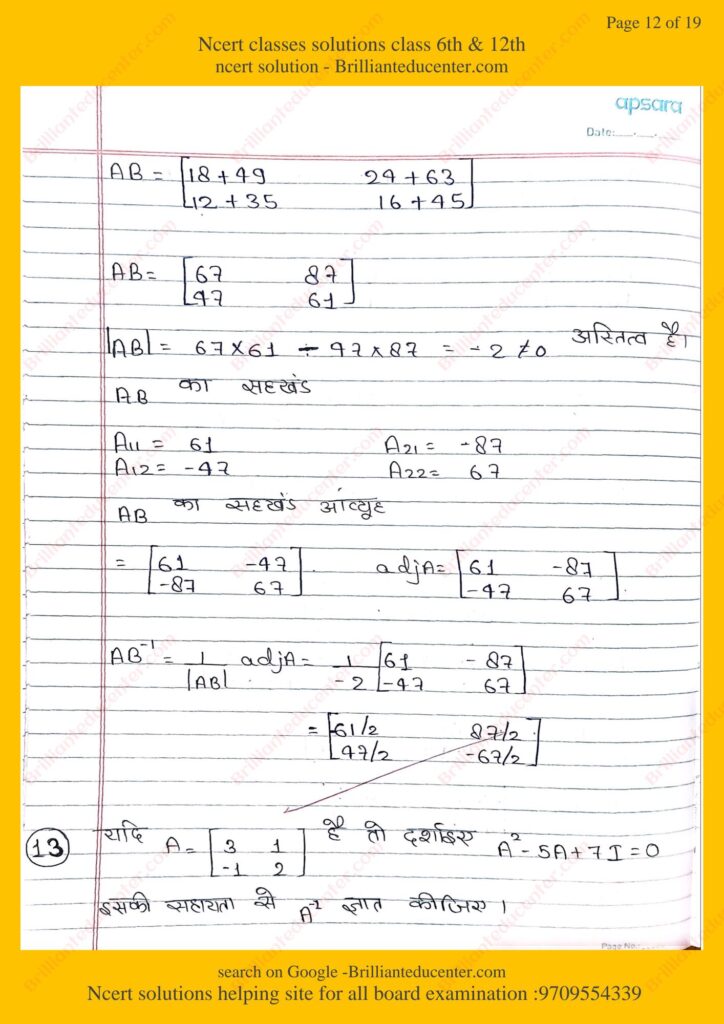 Page 12 of 19
Ncert classes solutions class 6th & 12th
ncert solution - Brillianteducenter.com
apsara
Date:
AB = [18+49 24+63
12+35 16+45]
AB = [67 87
47 61]
|AB| = 67×61 - 47×87 = -2 ≠0 अस्तित्व है।
AB का सहखंड
A11 = 61 A21 = -87
A12 = -47 A22 = 67
AB का सहखंड आव्यूह
= [61 -47 adjA = [61 -87
-87 67] -47 67]
AB⁻¹ = 1/|AB| adjA = 1/-2 [61 -87
-47 67]
= [-61/2 87/2
47/2 -67/2]
13 यदि A = [3 1 है तो दर्शाइए A²-5A+7I=0
-1 2]
इसकी सहायता से A⁻¹ ज्ञात कीजिए।
Page No.:
search on Google -Brillianteducenter.com
Ncert solutions helping site for all board examination :9709554339